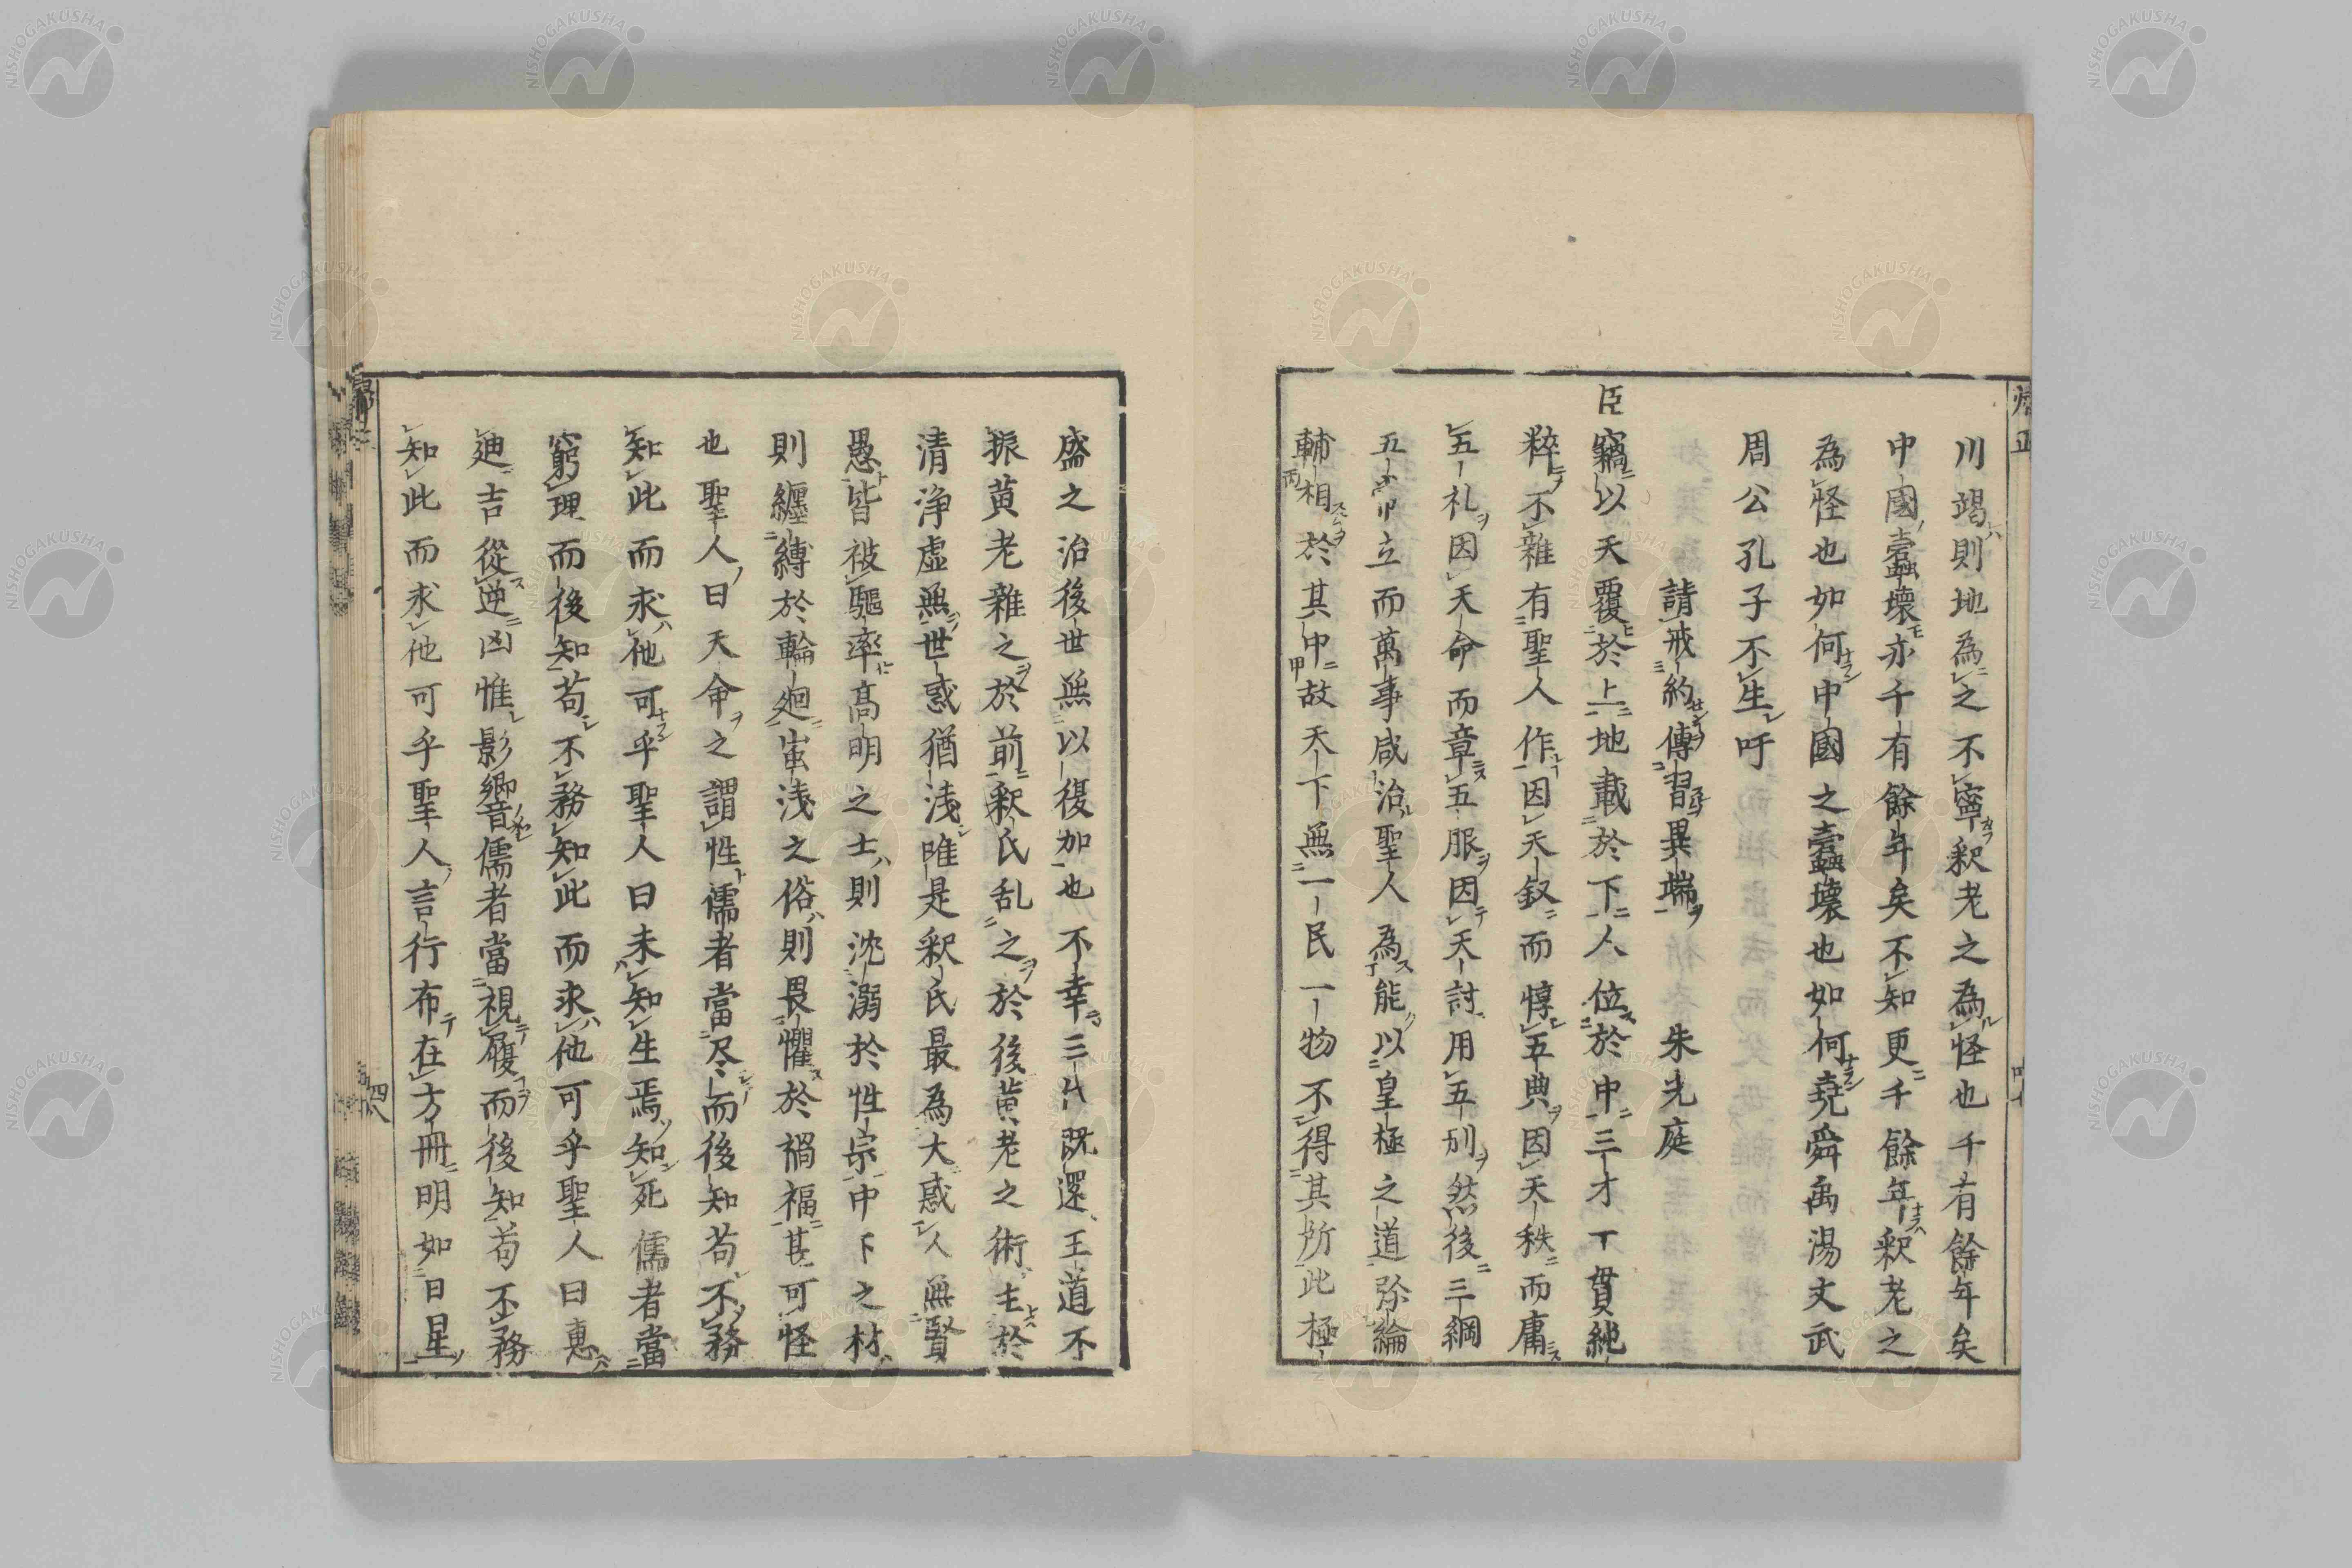 川竭則地為之不寧釈老之為怪也千有餘年矣
中國蠧壊亦千有餘年矣不知更千餘年釈老之
為怪也如何中國之蠧壊也如何堯舜禹湯文武
周公孔子不生吁
請戒約傳習異端 朱光庭
臣竊以天覆於上地載於下人位於中三才一貫純
粹不雜有聖人作因天叙而惇五典因天秩而庸
五礼因天命而章五服因天討用五刑然後三綱
五常立而萬事咸治聖人為能以皇極之道弥綸
輔相於其中故天下無一民一物不得其所此極
盛之治後世無以復加也不幸三代既還王道不
振黄老雜之於前釈氏乱之於後黄老之術主於
清浄虚無世惑猶浅唯是釈氏最為大惑人無賢
愚皆被驅率髙明之士則沈溺於性宗中下之材
則纏縛於輪廻蚩浅之俗則畏懼於禍福甚可怪
也聖人曰天命之謂性儒者當尽而後知苟不務
知此而求他可乎聖人曰未知生焉知死儒者當
窮理而後知苟不務知此而求他可乎聖人曰恵
迪吉從逆凶惟影響儒者當視履而後知苟不務
知此而求他可乎聖人言行布在方冊明如日星
四八
NISHOGAKUSHA